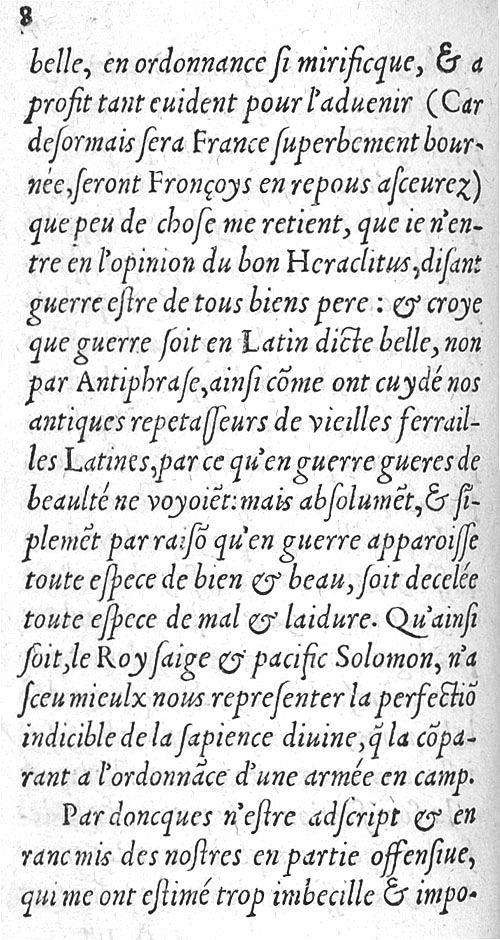 8
belle, en ordonnance ſi mirificque, & a
profit tant euident pour l'aduenir (Car
deſormais ſera France ſuperbement bour-
née, ſeront Fronçoys en repous aſceurez)
que peu de choſe me retient, que ie n'en-
tre en l'opinion du bon Heraclitus, diſant
guerre eſtre de tous biens pere : & croye
que guerre ſoit en Latin dicte belle, non
par Antiphraſe, ainſi cõme ont cuydé nos
antiques repetaſſeurs de vieilles ferrail-
les Latines, par ce qu'en guerre gueres de
beaulté ne voyoiẽt: mais abſolumẽt, & ſi-
plemẽt par raiſõ qu'en guerre apparoiſſe
toute eſpece de bien & beau, ſoit decelée
toute eſpece de mal & laidure. Qu'ainſi
ſoit, le Roy ſaige & pacific Solomon, n'a
ſceu mieulx nous repreſenter la perfectiõ
indicible de la ſapience diuine, q̃ la cõpa-
rant a l'ordonnãce d'une armée en camp.
Par doncques n'eſtre adſcript & en
ranc mis des noſtres en partie offenſiue,
qui me ont eſtimé trop imbecille & impo-